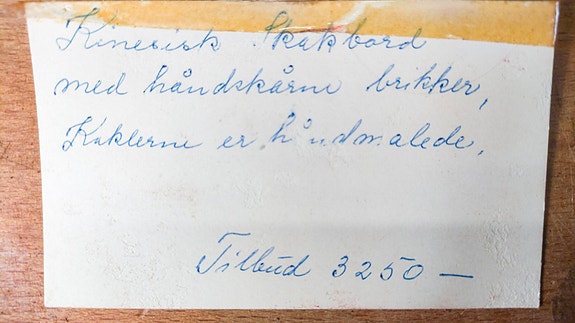 Kinesisk Skakbord
med håndskårne brikker,
Kaklerne er håndmalede.
Tilbud 3250 —